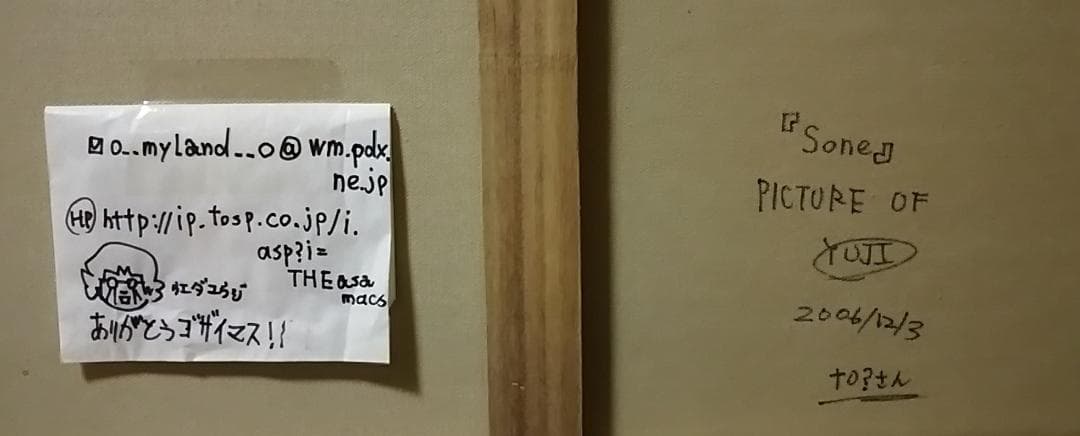 o__myland__o@wm.pdx.
ne.jp
HP http://ip.tosp.co.jp/i.
asp?i=
THEasa
macs
ウエダユウジ
ありがとうゴザイマス!!
『Sone』
PICTURE OF
YUJI
2006/12/3